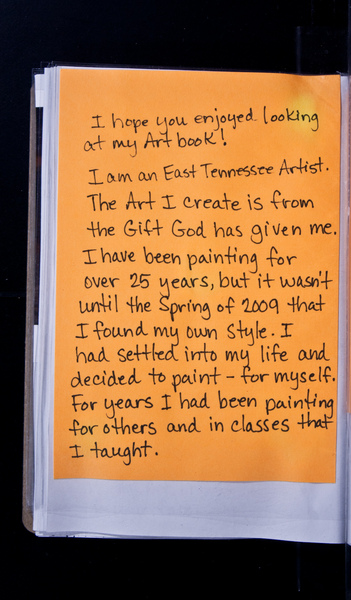 I hope you enjoyed looking
at my Art book!
I am an East Tennessee Artist.
The Art I create is from
the Gift God has given me.
I have been painting for
over 25 years, but it wasn't
until the Spring of 2009 that
I found my own Style. I
had settled into my life and
decided to paint - for myself.
For years I had been painting
for others and in classes that
I taught.